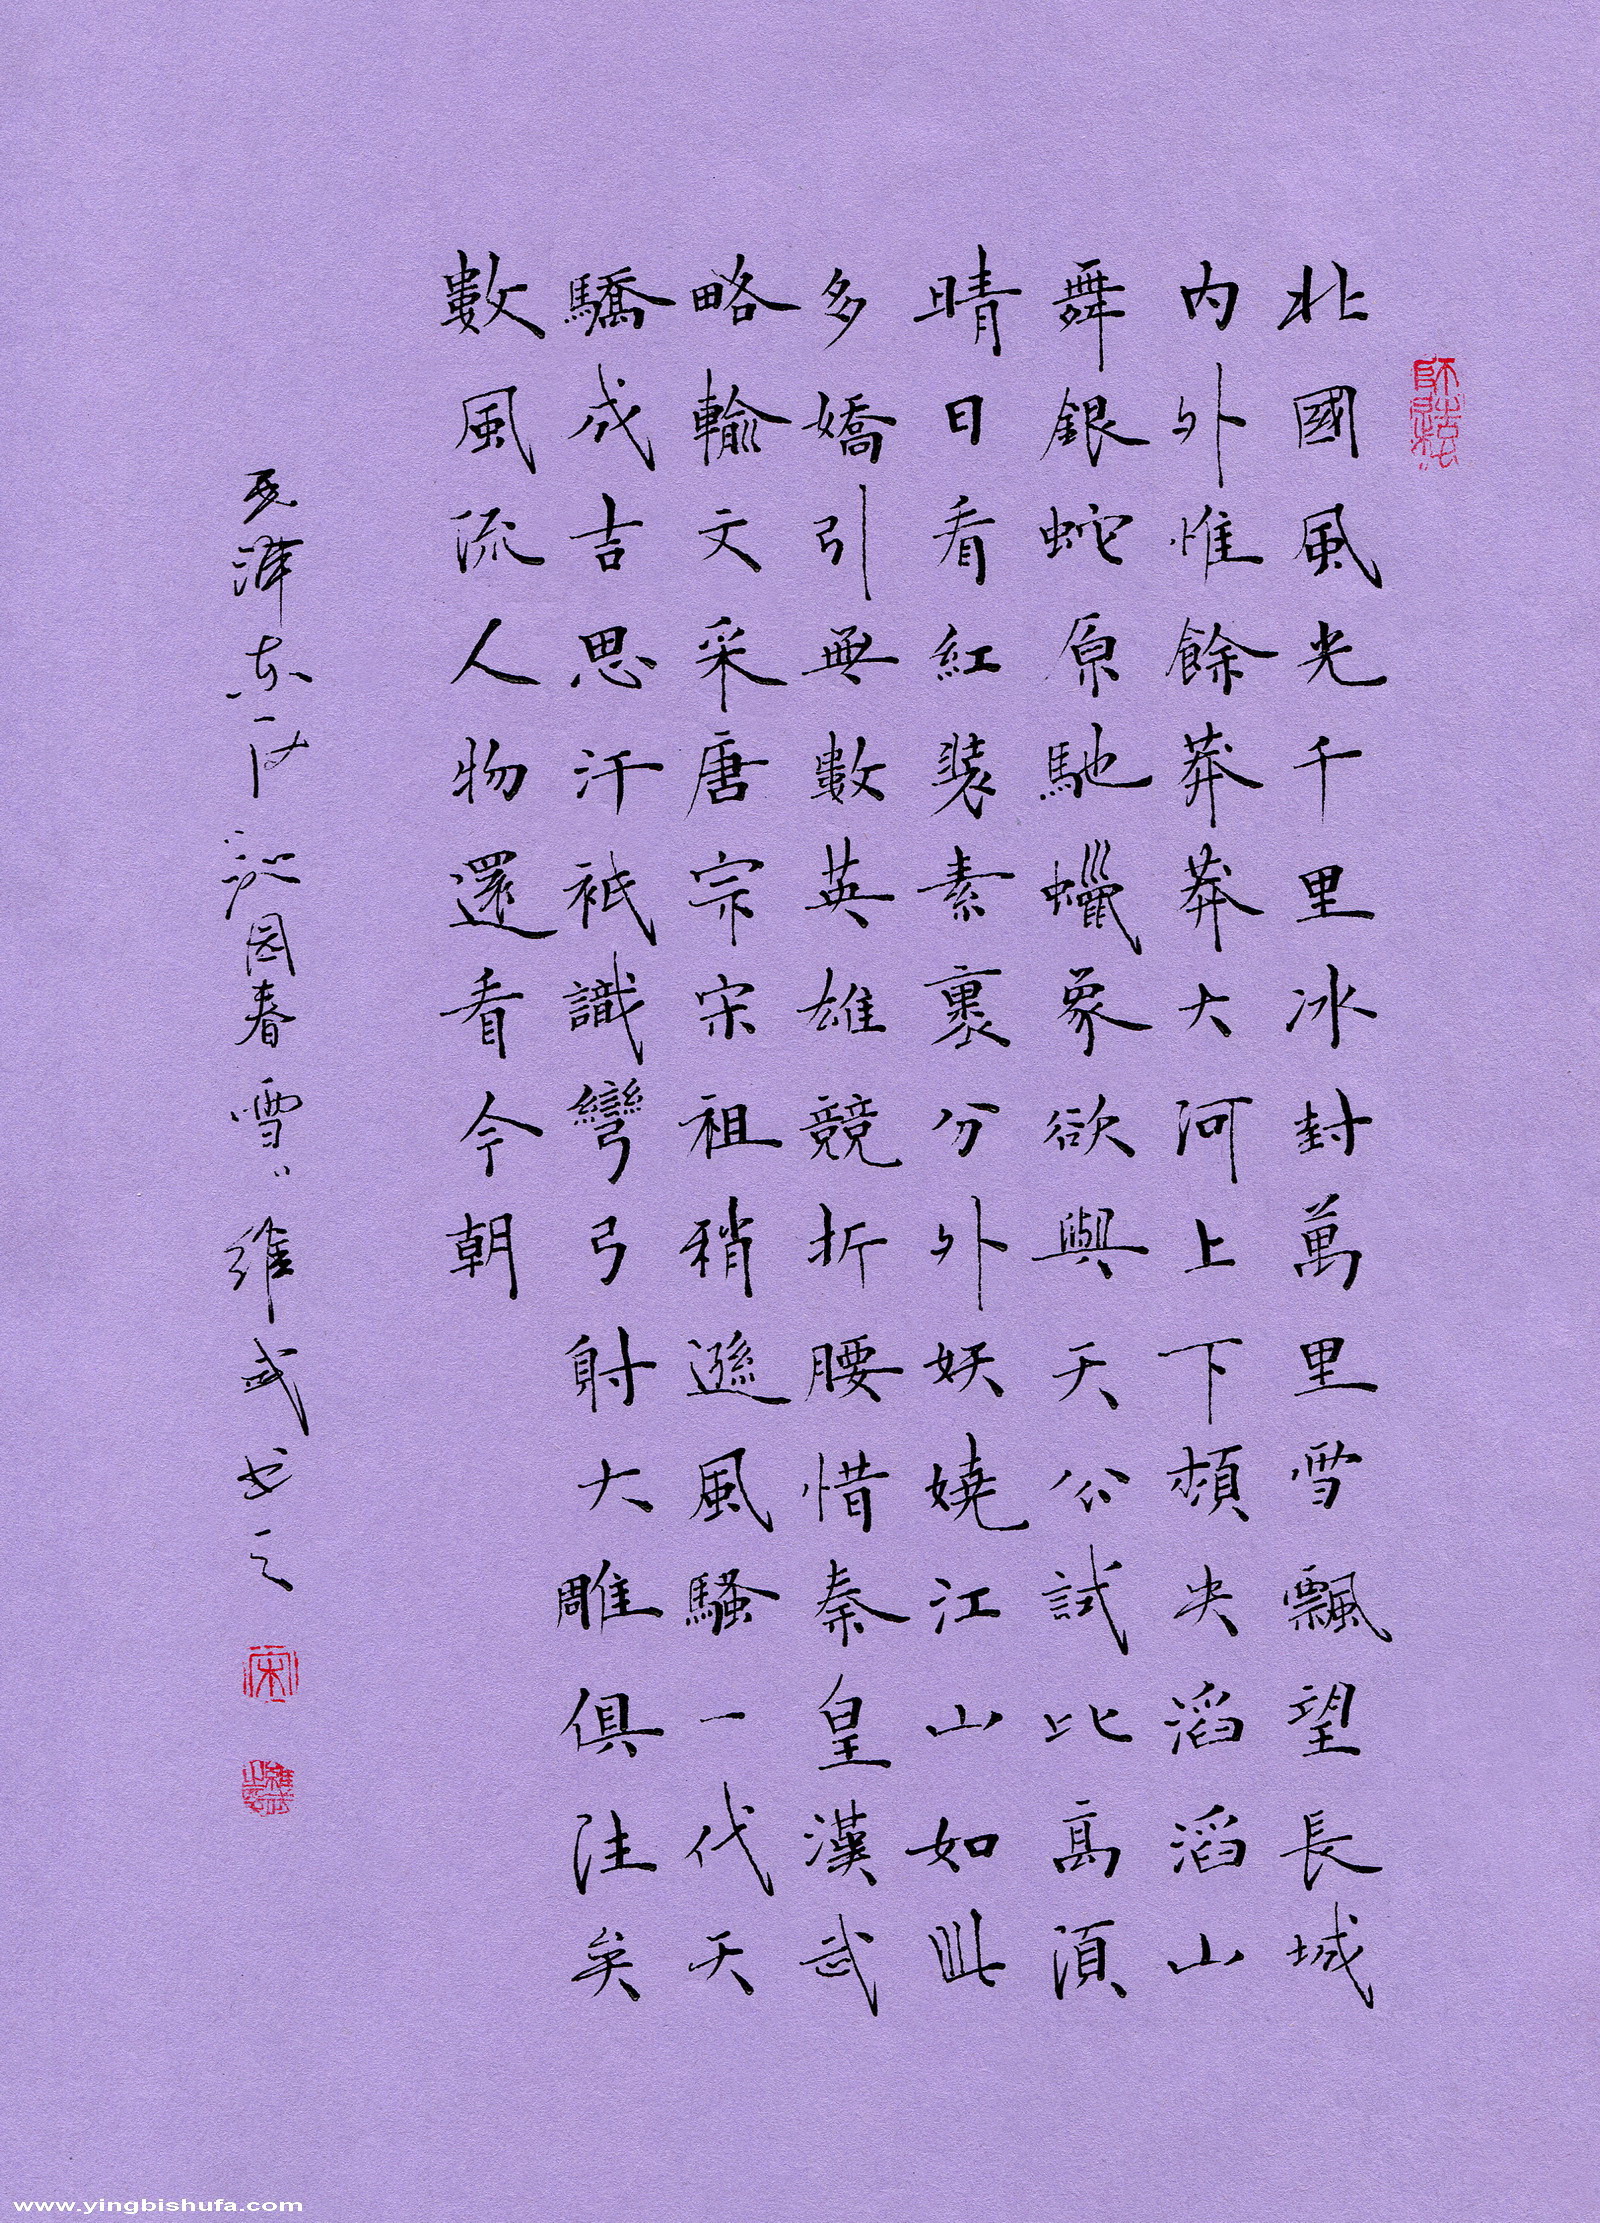 北國風光千里冰封萬里雪飄望長城
内外惟餘莽莽大河上下頓失滔滔山
舞銀蛇原馳蠟象欲與天公試比高須
晴日看紅裝素裹分外妖嬈江山如此
多嬌引無數英雄競折腰惜秦皇漢武
略輸文采唐宗宋祖稍遜風騷一代天
驕成吉思汗祇識彎弓射大雕俱往矣
數風流人物還看今朝
毛澤东词"沁园春雪"維武书之
宋
www.yingbishufa.com